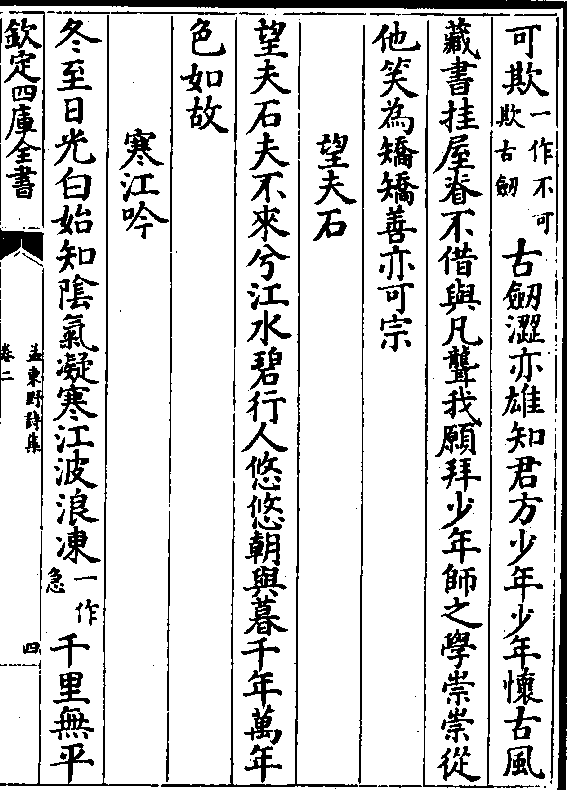 可欺一作不可欺古劒古劒澀亦雄知君方少年少年懷古風
藏書挂屋脊不借與凡聾我願拜少年師之學崇崇從
他笑為矯矯善亦可宗
望夫石
望夫石夫不來兮江水碧行人悠悠朝與暮千年萬年
色如故
寒江吟
冬至日光白始知陰氣凝寒江波浪凍一作急千里無平
欽定四庫全書
孟東野詩集
卷二
四